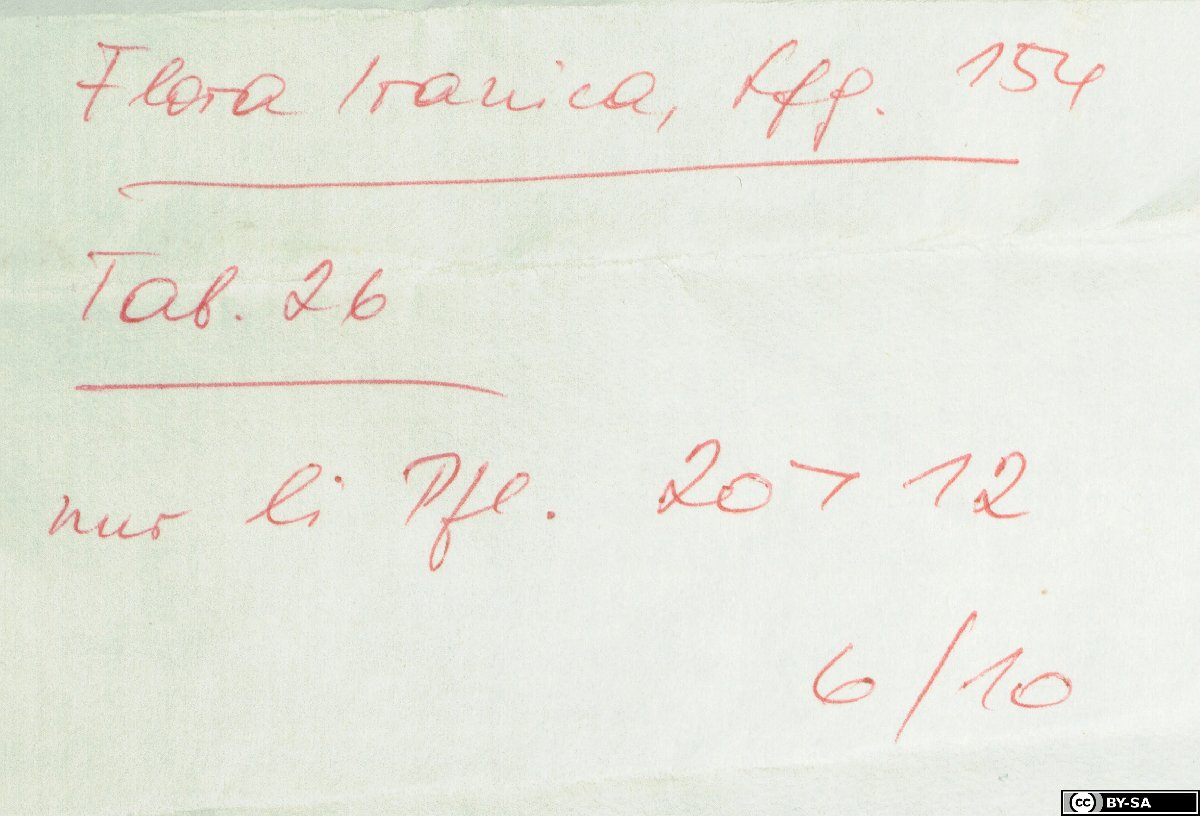 Flora Iranica, Lfg. 154
Tab. 26
nur li Pfl. 20 > 12
6/10
BY-SA